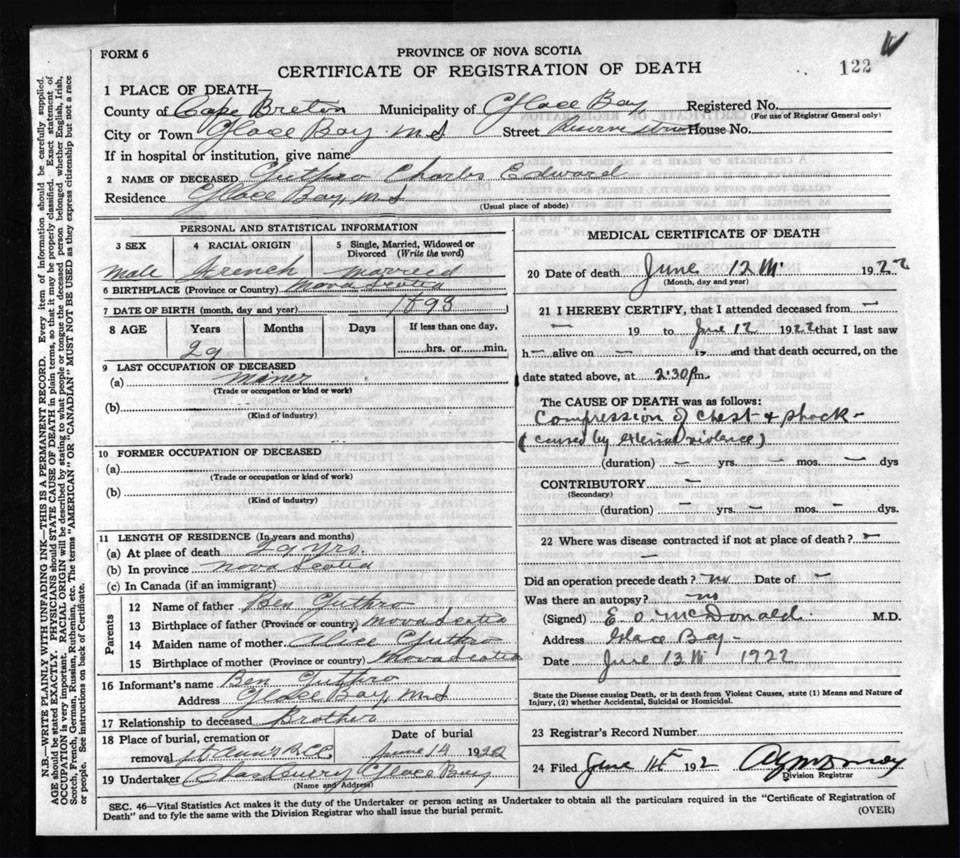 FORM 6
PROVINCE OF NOVA SCOTIA
CERTIFICATE OF REGISTRATION OF DEATH
122
1 PLACE OF DEATH—
County of Cape Breton Municipality of Glace Bay Registered No.
(For use of Registrar General only)
City or Town Glace Bay N.S Street Reserve House No.
If in hospital or institution, give name
2 NAME OF DECEASED Guthro Charles Edward
Residence Glace Bay, N.S
(Usual place of abode)
PERSONAL AND STATISTICAL INFORMATION
3 SEX 4 RACIAL ORIGIN 5 Single, Married, Widowed or Divorced (Write the word)
Male French Married
6 BIRTHPLACE (Province or Country) Nova Scotia
7 DATE OF BIRTH (month, day and year) 1893
8 AGE Years Months Days If less than one day,
29 hrs. or min.
9 LAST OCCUPATION OF DECEASED
(a) Miner
(Trade or occupation or kind of work)
(b)
(Kind of industry)
10 FORMER OCCUPATION OF DECEASED
(a)
(Trade or occupation or kind of work)
(b)
(Kind of industry)
11 LENGTH OF RESIDENCE (In years and months)
(a) At place of death 29 yrs.
(b) In province Nova Scotia
(c) In Canada (if an immigrant)
Parents
12 Name of father Ben Guthro
13 Birthplace of father (Province or country) Nova Scotia
14 Maiden name of mother Alice Guthro
15 Birthplace of mother (Province or country) Nova Scotia
16 Informant's name Ben Guthro
Address Glace Bay, N.S
17 Relationship to deceased Brother
18 Place of burial, cremation or Date of burial
removal St Anns R.C.C. June 14 1922
19 Undertaker Chas Curry Glace Bay
(Name and Address)
MEDICAL CERTIFICATE OF DEATH
20 Date of death June 12th 1922
(Month, day and year)
21 I HEREBY CERTIFY, that I attended deceased from —
— 19 to June 12 1922 that I last saw
h— alive on — 19 — and that death occurred, on the
date stated above, at 2:30 p.m.
The CAUSE OF DEATH was as follows:
Compression of chest & shock —
(caused by external violence)
(duration) — yrs. — mos. — dys
CONTRIBUTORY —
(Secondary)
(duration) — yrs. — mos. — dys.
22 Where was disease contracted if not at place of death? —
—
Did an operation precede death? no Date of —
Was there an autopsy? no
(Signed) E. O. McDonald M.D.
Address Glace Bay —
Date June 13th 1922
State the Disease causing Death, or in death from Violent Causes, state (1) Means and Nature of Injury, (2) whether Accidental, Suicidal or Homicidal.
23 Registrar's Record Number
24 Filed June 14th 192
Division Registrar
SEC. 46—Vital Statistics Act makes it the duty of the Undertaker or person acting as Undertaker to obtain all the particulars required in the "Certificate of Registration of
Death" and to fyle the same with the Division Registrar who shall issue the burial permit.
(OVER)
N.B.—WRITE PLAINLY WITH UNFADING INK—THIS IS A PERMANENT RECORD. Every item of information should be carefully supplied.
AGE should be stated EXACTLY. PHYSICIANS should STATE CAUSE OF DEATH in plain terms, so that it may be properly classified. Exact statement of
OCCUPATION is very important. RACIAL ORIGIN will be described by stating to what people or tongue the deceased person belonged whether English, Irish,
Scotch, French, German, Russian, Ruthenian, etc. The terms "AMERICAN" OR "CANADIAN" MUST NOT BE USED as they express citizenship but not a race
or people. See instructions on back of Certificate.